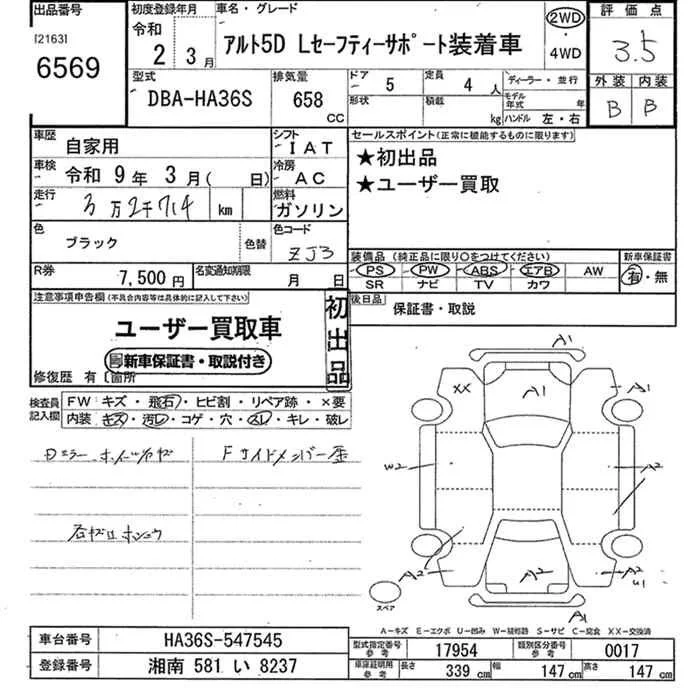 出品番号 初度登録年月 車名・グレード 評価点
[2163]
6569
令和 2年 3月
アルト5D Lセーフティーサポート装着車
2WD
・
4WD
3.5
外装 内装
B B
型式 排気量 ドア 定員 ディーラー・並行
DBA-HA36S 658 CC 5 4 人
形状 積載 kg モデル年式 年
ハンドル 左・右
車歴 自家用 シフト IAT
セールスポイント(正常に機能するものに限ります)
★初出品
★ユーザー買取
車検 令和 9年 3月( 日) 冷房 AC
走行 3万2千714 km 燃料 ガソリン
色 ブラック 色替 色コード ZJ3
装備品(純正品に限り○をつけてください) 新車保証書
PS PW ABS エアB AW 有・無
SR ナビ TV カワ
R券 7,500円 名変通知期限 月 日
注意事項申告欄(不具合内容等は具体的に記入して下さい) 初出品 後日品 保証書・取説
ユーザー買取車
新車保証書・取説付き
修復歴 有 [箇所
検査員記入欄
FW キズ・飛石・ヒビ割・リペア跡・×要
内装 キズ・汚レ・コゲ・穴・スレ・キレ・破レ
A1
XX A1 A1
W2 A2
A2 A2 A2 U1
スペア A1
A-キズ E-エクボ U-凹み W-補修跡 S-サビ C-腐食 XX-交換済
車台番号 HA36S-547545 型式指定番号 参考 17954 類別区分番号 参考 0017
登録番号 湘南 581 い 8237 車庫証明用 参考 長さ 339 cm 幅 147 cm 高さ 147 cm